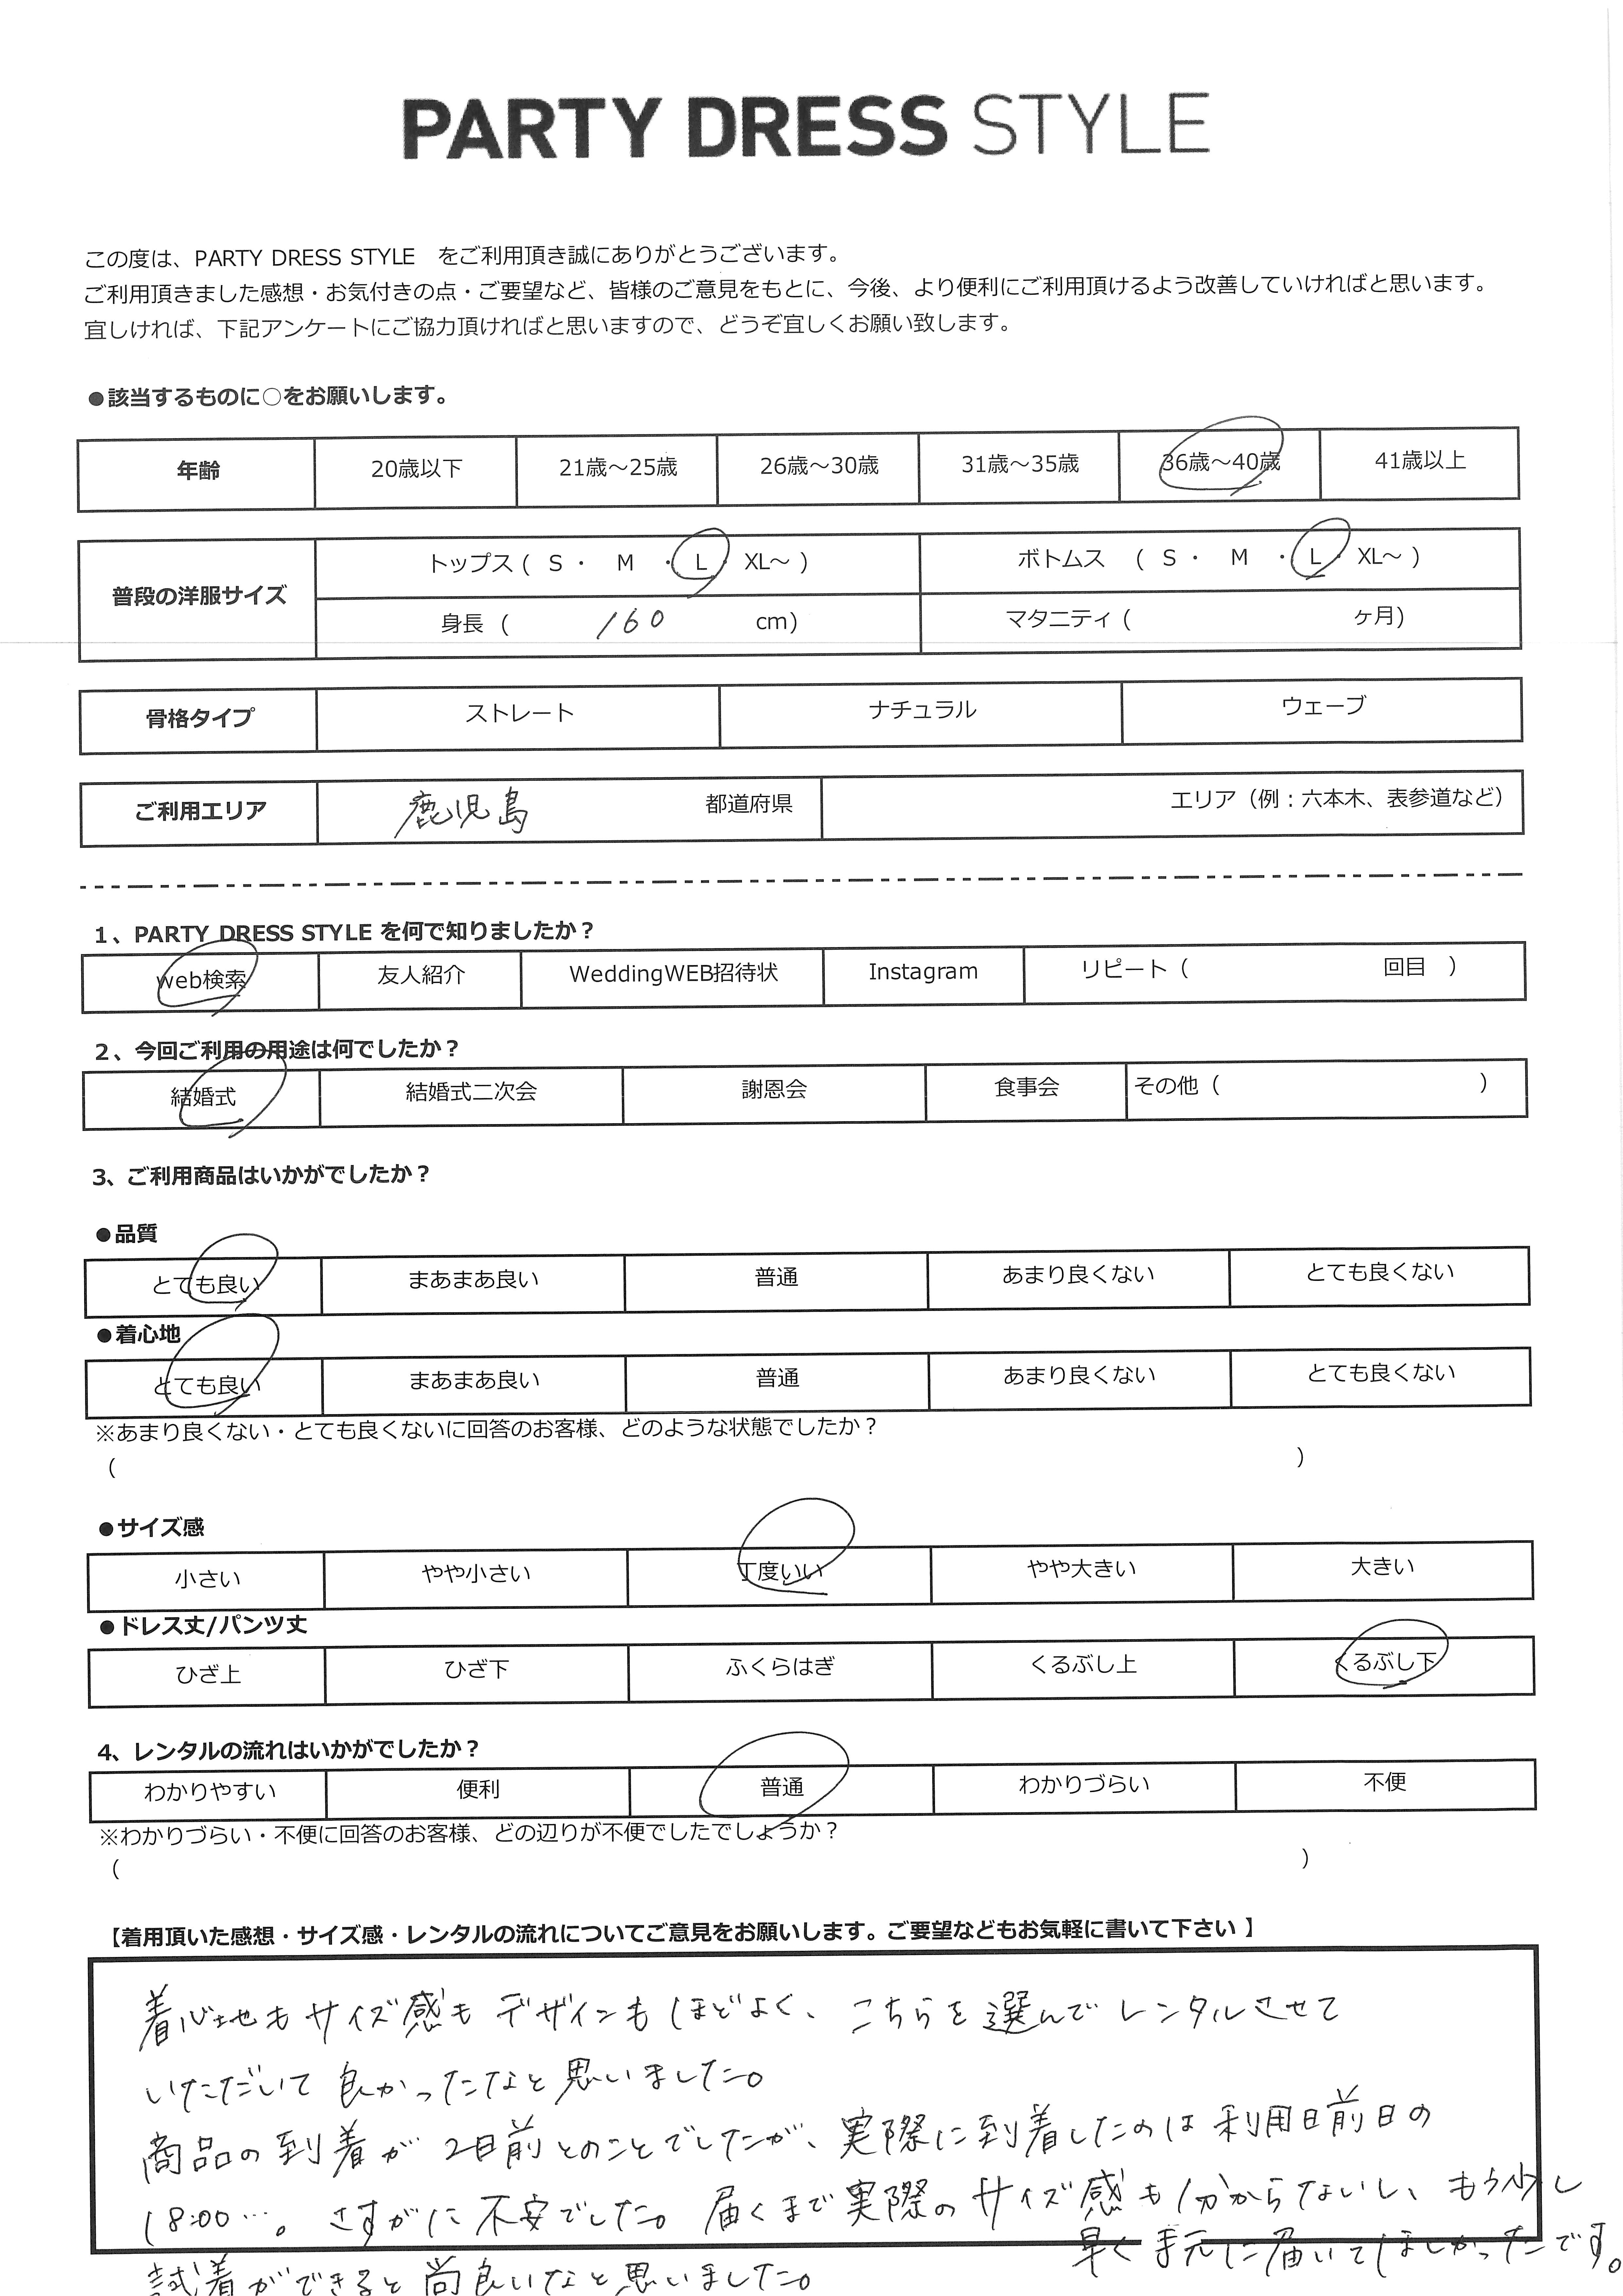 PARTY DRESS STYLE
この度は、PARTY DRESS STYLE　をご利用頂き誠にありがとうございます。
ご利用頂きました感想・お気付きの点・ご要望など、皆様のご意見をもとに、今後、より便利にご利用頂けるよう改善していければと思います。
宜しければ、下記アンケートにご協力頂ければと思いますので、どうぞ宜しくお願い致します。
●該当するものに○をお願いします。
年齢 20歳以下 21歳～25歳 26歳～30歳 31歳～35歳 36歳～40歳 41歳以上
普段の洋服サイズ トップス ( S ・ M ・ L ・ XL～ ) ボトムス ( S ・ M ・ L ・ XL～ )
身長 ( 160 cm) マタニティ ( ヶ月)
骨格タイプ ストレート ナチュラル ウェーブ
ご利用エリア 鹿児島 都道府県 エリア（例：六本木、表参道など）
1、PARTY DRESS STYLE を何で知りましたか？
web検索 友人紹介 WeddingWEB招待状 Instagram リピート（ 回目 ）
2、今回ご利用の用途は何でしたか？
結婚式 結婚式二次会 謝恩会 食事会 その他（ ）
3、ご利用商品はいかがでしたか？
●品質
とても良い まあまあ良い 普通 あまり良くない とても良くない
●着心地
とても良い まあまあ良い 普通 あまり良くない とても良くない
※あまり良くない・とても良くないに回答のお客様、どのような状態でしたか？
（ ）
●サイズ感
小さい やや小さい 丁度いい やや大きい 大きい
●ドレス丈/パンツ丈
ひざ上 ひざ下 ふくらはぎ くるぶし上 くるぶし下
4、レンタルの流れはいかがでしたか？
わかりやすい 便利 普通 わかりづらい 不便
※わかりづらい・不便に回答のお客様、どの辺りが不便でしたでしょうか？
（ ）
【着用頂いた感想・サイズ感・レンタルの流れについてご意見をお願いします。ご要望などもお気軽に書いて下さい 】
着心地もサイズ感もデザインもほどよく、こちらを選んでレンタルさせて
いただいて良かったなと思いました。
商品の到着が2日前とのことでしたが、実際に到着したのは利用日前日の
18:00…。さすがに不安でした。届くまで実際のサイズ感も分からないし、もう少し
早く手元に届いてほしかったです。
試着ができると尚良いなと思いました。